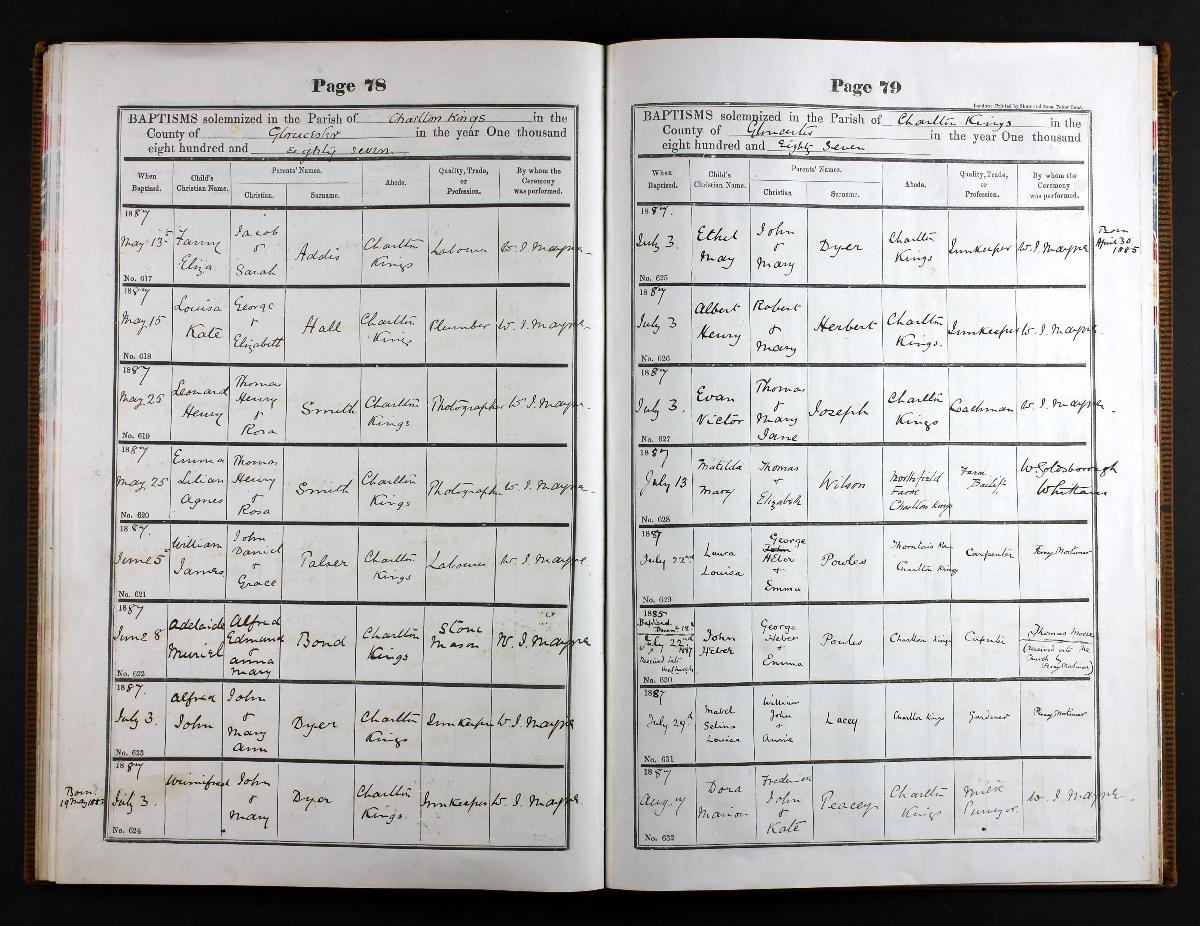 Page 78
BAPTISMS solemnized in the Parish of Charlton Kings in the
County of Gloucester in the year One thousand
eight hundred and eighty seven
When Baptized.
Child's Christian Name.
Parents' Names.
Christian.
Surname.
Abode.
Quality, Trade, or Profession.
By whom the Ceremony was performed.
1887
May 13 Fanny Eliza Jacob & Sarah Addis Charlton Kings Labourer W. J. Mayne
No. 617
1887
May 15 Louisa Kate George & Elizabeth Hall Charlton Kings Plumber W. J. Mayne
No. 618
1887
May 25 Leonard Henry Thomas Henry & Rosa Smith Charlton Kings Photographer W. J. Mayne
No. 619
1887
May 25 Emma Lilian Agnes Thomas Henry & Rosa Smith Charlton Kings Photographer W. J. Mayne
No. 620
1887.
June 5 William James John Daniel & Grace Palser Charlton Kings Labourer W. J. Mayne
No. 621
1887
June 8 Adelaide Muriel Alfred Edmund & Anna Mary Bond Charlton Kings Stone Mason W. J. Mayne
No. 622
1887.
July 3. Alfred John John & Mary Ann Dyer Charlton Kings Innkeeper W. J. Mayne
No. 623
1887
Born 19 May
July 3. Winnifred John & Mary Dyer Charlton Kings. Innkeeper W. J. Mayne.
No. 624
Page 79
London: Printed by Shaw and Sons, Fetter Lane.
BAPTISMS solemnized in the Parish of Charlton Kings in the
County of Gloucester in the year One thousand
eight hundred and Eighty Seven
When Baptized.
Child's Christian Name.
Parents' Names.
Christian.
Surname.
Abode.
Quality, Trade, or Profession.
By whom the Ceremony was performed.
1887.
July 3. Ethel May John & Mary Dyer Charlton Kings Innkeeper W. J. Mayne
Born April 30 1885
No. 625
1887
July 3 Albert Henry Robert & Mary Herbert Charlton Kings. Innkeeper W. J. Mayne.
No. 626
1887
July 3. Evan Victor Thomas & Mary Jane Jozeph Charlton Kings Coachman W. J. Mayne.
No. 627
1887
July 13 Matilda Mary Thomas & Elizabeth Wilson Northfield Farm Charlton Kings Farm Bailiff W Goldsborough Whittam
No. 628
1887
July 22nd Laura Louisa George John Heber & Emma Powles Charlton Kings Carpenter Percy Mortimer
No. 629
1885
Baptized
July 22nd 1887
Received into the Church
John Heber George Heber & Emma Powles Charlton Kings Carpenter Thomas Moore
(received into the Church by Percy Mortimer)
No. 630
1887
July 29th Mabel Selina Louisa William John & Annie Lacey Charlton Kings Gardener Percy Mortimer
No. 631
1887
Aug. 7 Dora Marion Frederick John & Kate Peacey Charlton Kings Milk Purveyor W. J. Mayne.
No. 632